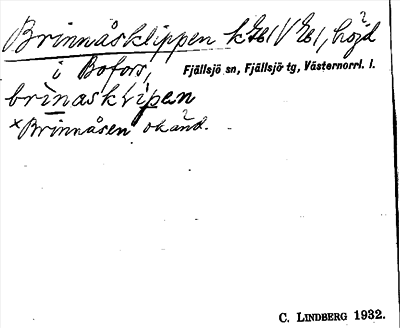 Brinnåsklippen k Ze1 V Ze1, höjd
i Bofors,
Fjällsjö sn, Fjällsjö tg, Västernorrl. l.
brinasklipen
*Brinnåsen okänd.
C. LINDBERG 1932.